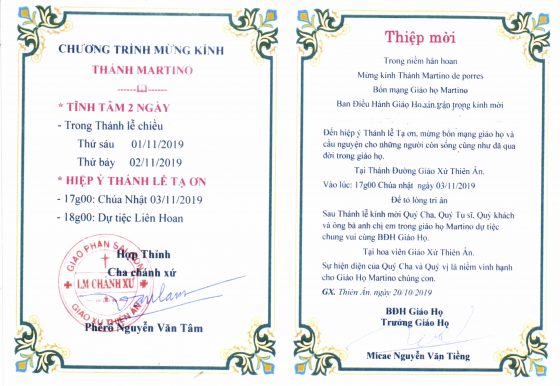 CHƯƠNG TRÌNH MỪNG KÍNH
THÁNH MARTINO
* TĨNH TÂM 2 NGÀY
- Trong Thánh lễ chiều
Thứ sáu 01/11/2019
Thứ bảy 02/11/2019
* HIỆP Ý THÁNH LỄ TẠ ƠN
- 17g00: Chúa Nhật 03/11/2019
- 18g00: Dự tiệc Liên Hoan
Hợp Thỉnh
Cha chánh xứ
GIÁO PHẬN SÀI GÒN
LM CHÁNH XỨ
GIÁO XỨ THIÊN ÂN
Phêrô Nguyễn Văn Tâm
Thiệp mời
Trong niềm hân hoan
Mừng kính Thánh Martino de porres
Bổn mạng Giáo họ Martino
Ban Điều Hành Giáo Họ xin trân trọng kính mời
Đến hiệp ý Thánh lễ Tạ ơn, mừng bổn mạng giáo họ và
cầu nguyện cho những người còn sống cũng như đã qua
đời trong giáo họ.
Tại Thánh Đường Giáo Xứ Thiên Ân.
Vào lúc: 17g00 Chúa nhật ngày 03/11/2019
Để tỏ lòng tri ân
Sau Thánh lễ kính mời Quý Cha, Quý Tu sĩ, Quý khách
và ông bà anh chị em trong giáo họ Martino dự tiệc
chung vui cùng BĐH Giáo Họ.
Tại hoa viên Giáo Xứ Thiên Ân.
Sự hiện diện của Quý Cha và Quý vị là niềm vinh hạnh
cho Giáo Họ Martino chúng con.
GX. Thiên Ân, ngày 20/10/2019
BĐH Giáo Họ
Trưởng Giáo Họ
Micae Nguyễn Văn Tiếng